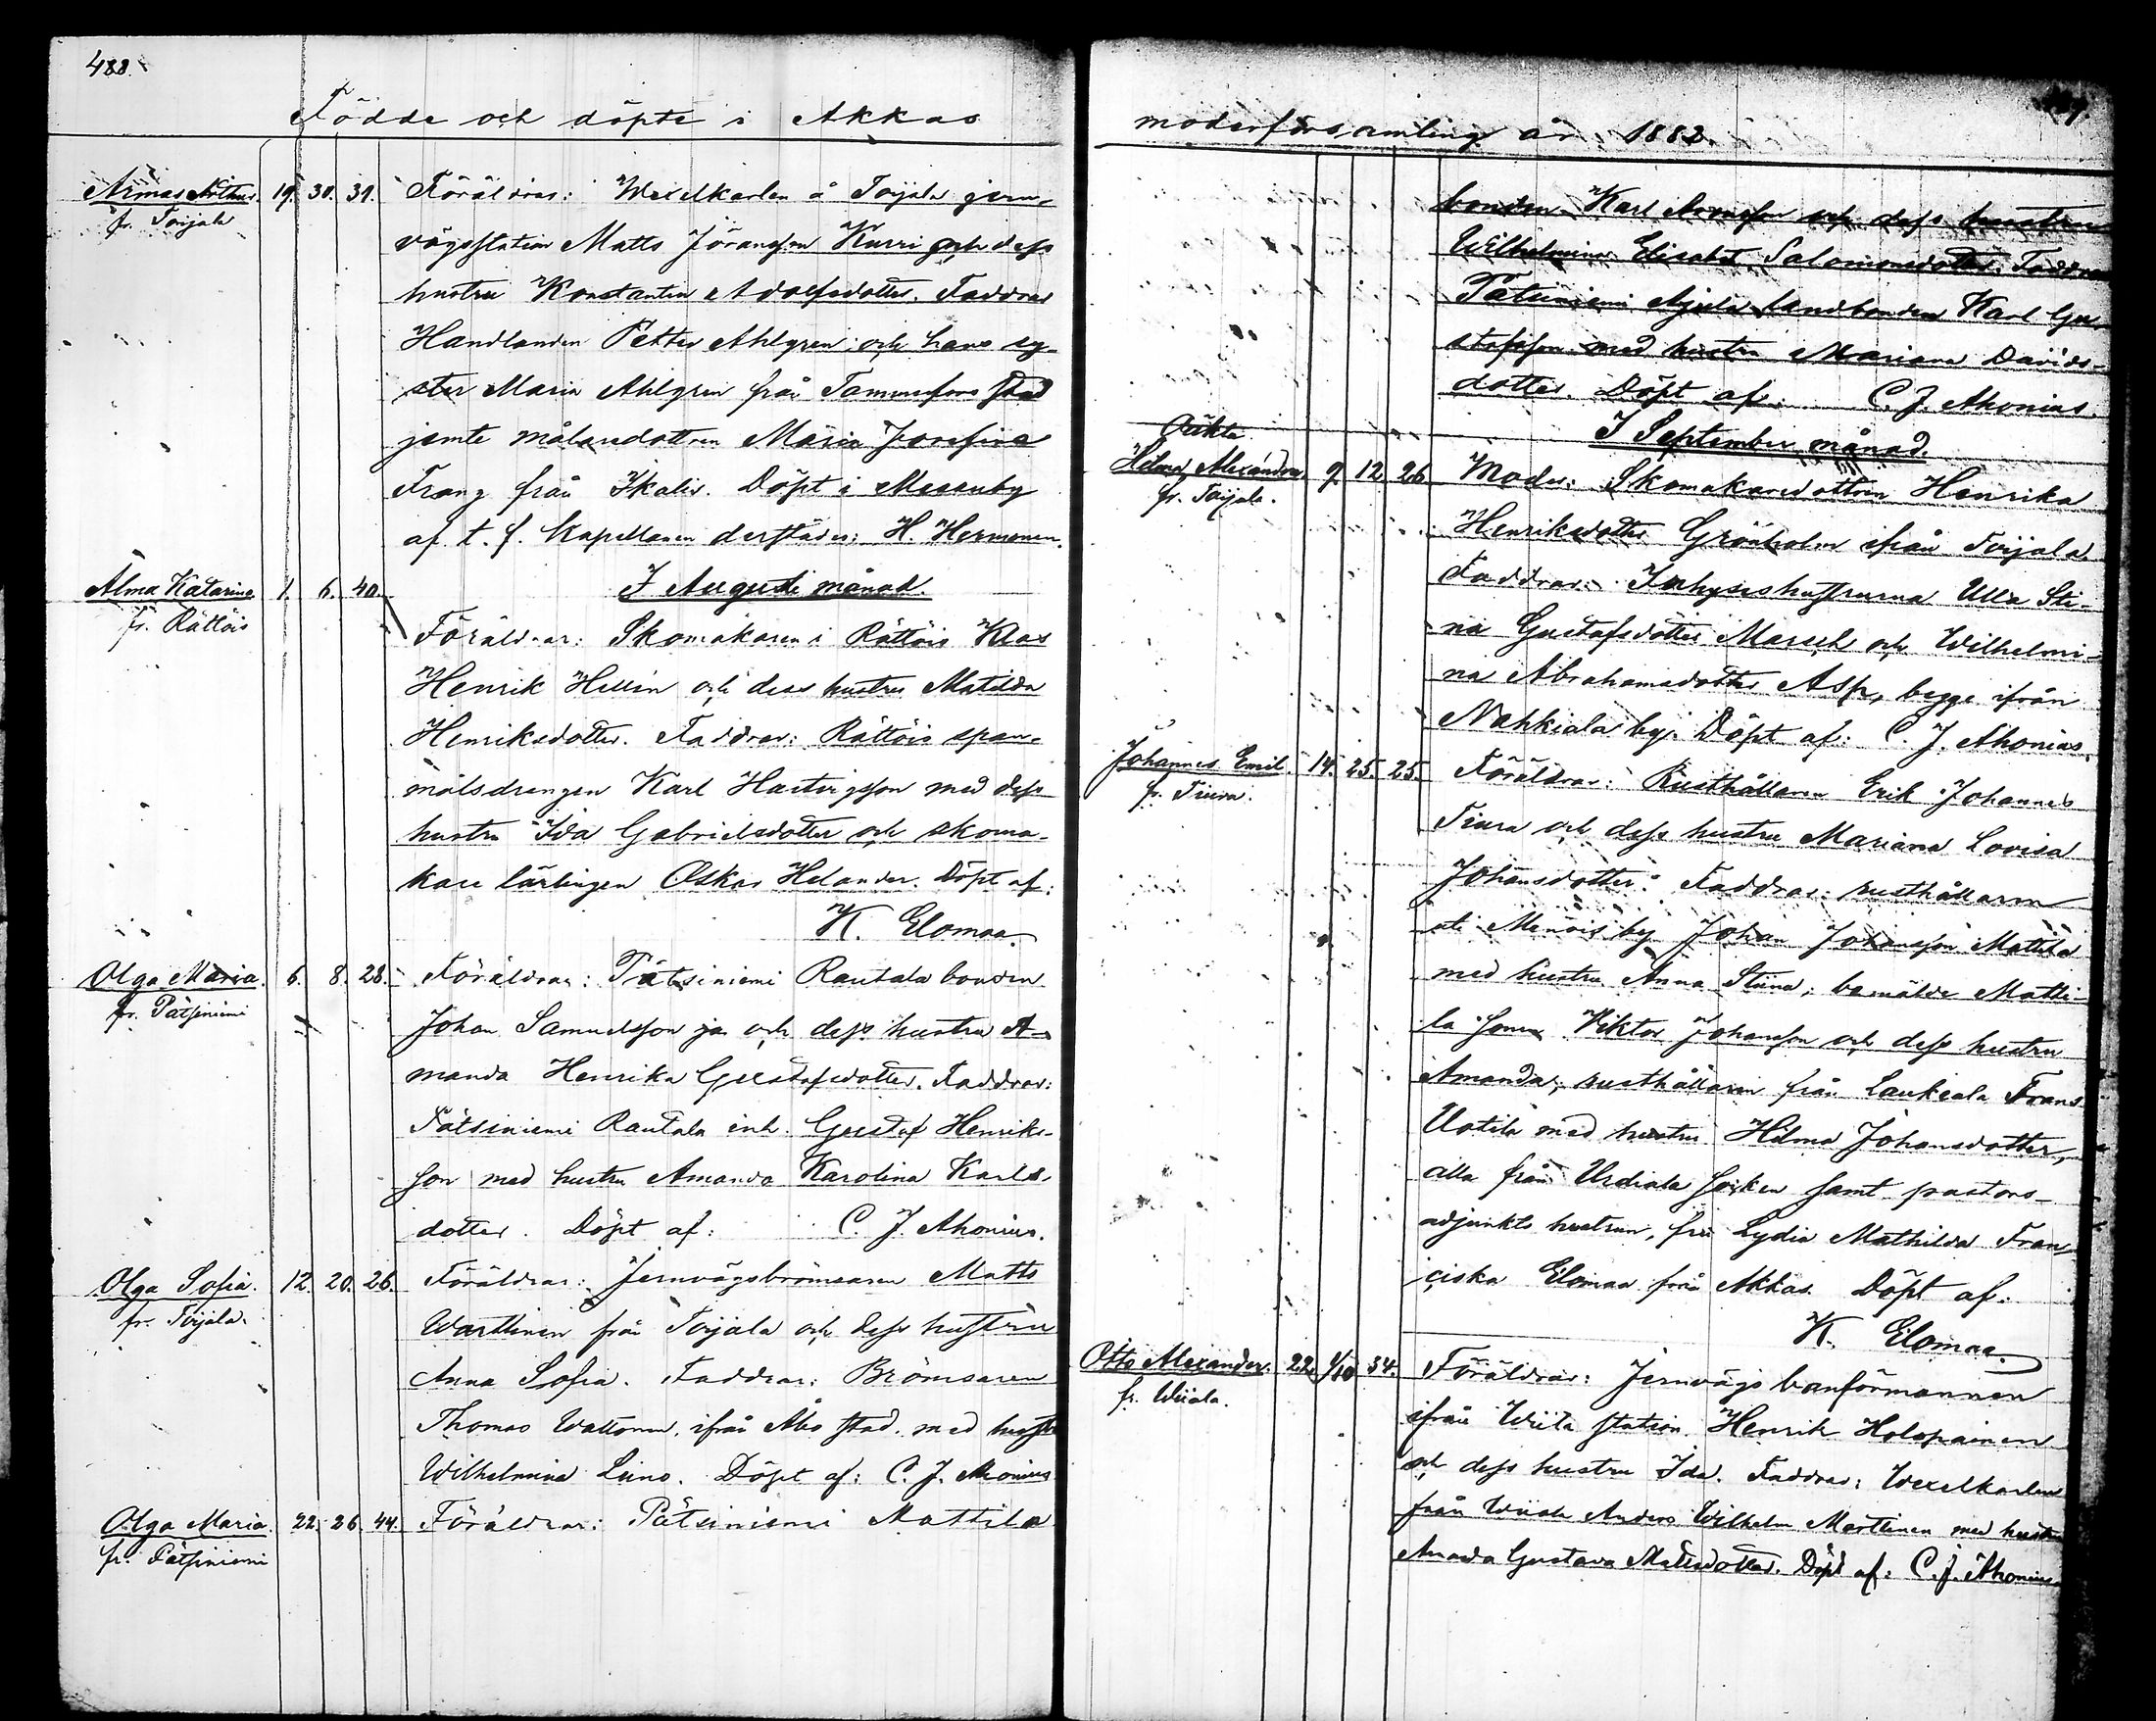 488.
Födde och döpte i Akkas
Armas Arthur. 19. 30. 31. Föräldrar: Wexelkarlen å Toijala jern-
fr. Toijala
vägsstation Matts Jöransson Kurri och dess
hustru Konstantia Adolfsdotter. Faddrar
Handlanden Petter Ahlgren och hans sy-
ster Maria Ahlgren från Tammerfors stad
jemte målaredottren Maria Josefina
Frang från Ikalis. Döpt i Messuby
af t. f. Kapellanen derstädes: H. Hermonen.
I Augusti månad.
Alma Katarina 1. 6. 40.
fr. Rättöis
Föräldrar: Skomakaren i Rättöis Klas
Henrik Hellén och dess hustru Matilda
Henriksdotter. Faddrar: Rättöis span-
målsdrengen Karl Hartvigsson med dess
hustru Ida Gabrielsdotter och skoma-
kare lärlingen Oskar Helander. Döpt af:
K. Elomaa.
Olga Maria. 6. 8. 28. Föräldrar: Pätsiniemi Rautala bonden
fr. Pätsiniemi
Johan Samuelsson och dess hustru A-
manda Henrika Gustafsdotter. Faddrar:
Pätsiniemi Rautala inh. Gustaf Henriks-
son med hustru Amanda Karolina Karls-
dotter. Döpt af: C. J. Ahonius.
Olga Sofia. 12. 20. 26. Föräldrar: Jernvägsbromsaren Matts
fr. Toijala.
Warttinen från Toijala och dess hustru
Anna Sofia. Faddrar: Brömsaren
Thomas Wattonen ifrån Åbo stad med hustru
Wilhelmina Leino. Döpt af: C. J. Ahonius
Olga Maria. 22. 26. 44. Föräldrar: Pätsiniemi Mattila
fr. Pätsiniemi
moderförsamling år 1882.
bonden Karl Aronsson och dess hustru
Wilhelmina Elisabet Salomonsdotter. Faddrar
Pätsiniemi Äijälä landbonden Karl Gu-
stafsson med hustru Mariana Davids-
dotter. Döpt af: C. J. Ahonius.
I September månad.
Oäkta
Hilma Alexandra 9. 12. 26. Moder: Skomakaredottren Henrika
fr. Toijala.
Henriksdotter Grönholm ifrån Toijala.
Faddrar: Inhyseshustrurna Ulla Sti-
na Gustafsdotter Marsch och Wilhelmi-
na Abrahamsdotter Asp, begge ifrån
Nahkiala by. Döpt af: C. J. Ahonius.
Johannes Emil. 14. 25. 25. Föräldrar: Rusthållaren Erik Johannes
fr. Tiura.
Tiura och dess hustru Mariana Lovisa
Johansdotter. Faddrar: rusthållaren
uti Menois by Johan Johansson Mattila
med hustru Anna Stiina; bemälde Matti-
la sonen Viktor Johansson och dess hustru
Amanda; rusthållaren från Laukeala Frans
Uotila med hustru Hilma Johansdotter,
alla från Urdiala socken samt pastors-
adjunkts hustrun, fru Lydia Mathilda Fran-
ciska Elomaa från Akkas. Döpt af:
K. Elomaa.
Otto Alexander. 22. 1/10 34. Föräldrar: Jernvägs banförmannen
fr. Wiiala.
ifrån Wiiala station Henrik Holopainen
och dess hustru Ida. Faddrar: Wexelkarlen
från Wiiala Anders Wilhelm Marttinen med hustru
Amanda Gustava Mattsdotter. Döpt af: C. J. Ahonius.